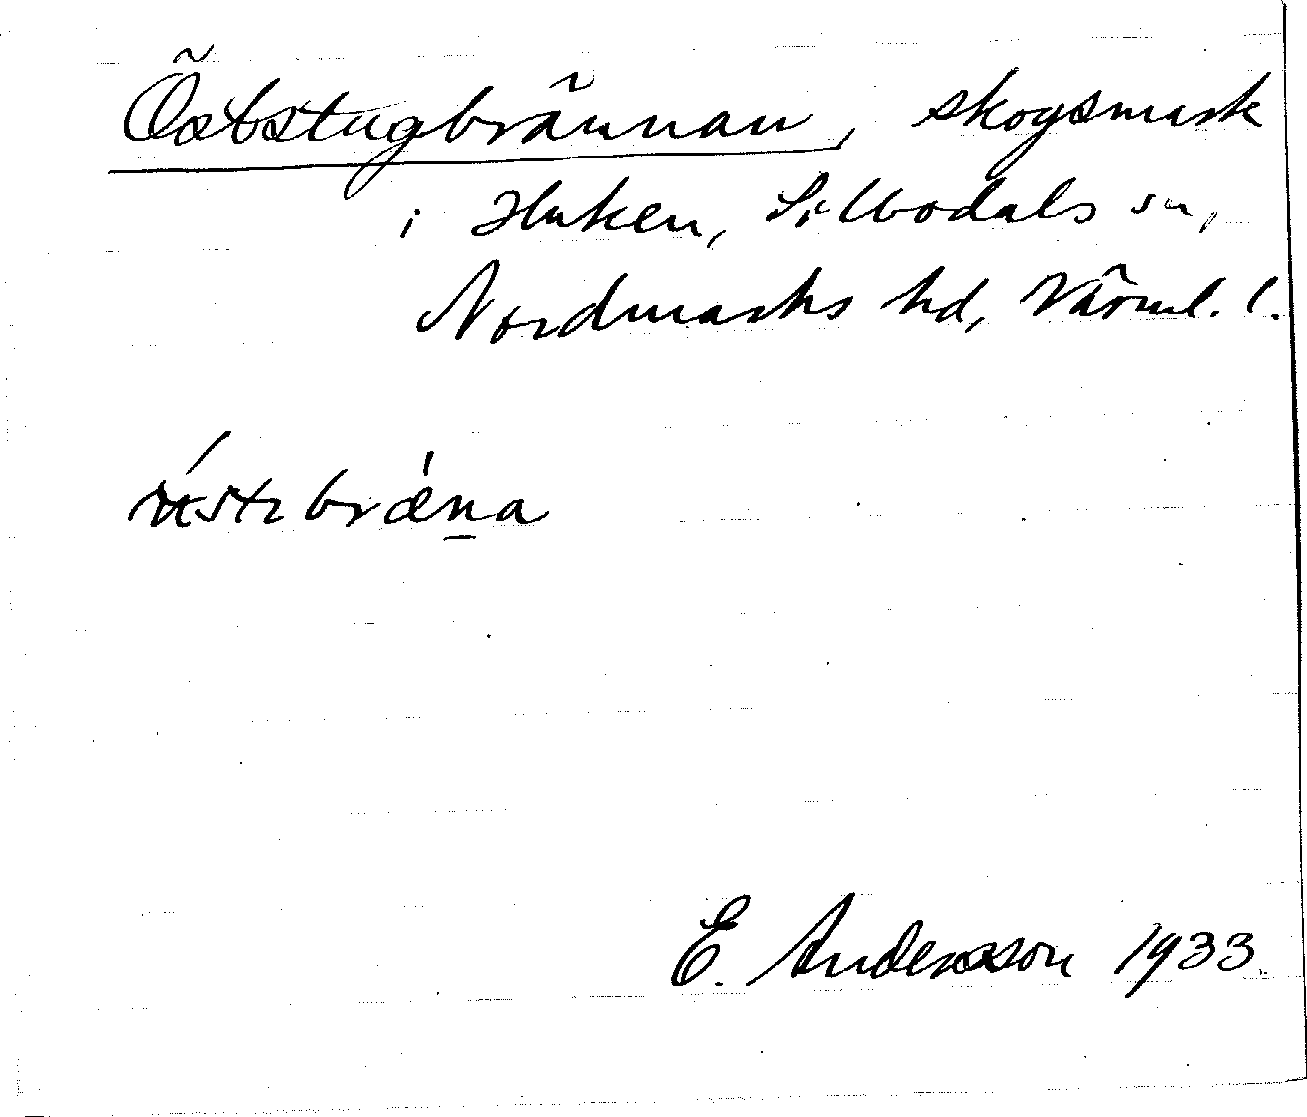 Östbstugbrännan, skogsmark
i Huken, Silbodals sn,
Nordmarks hd, Värml. l.
E. Andersson 1933.